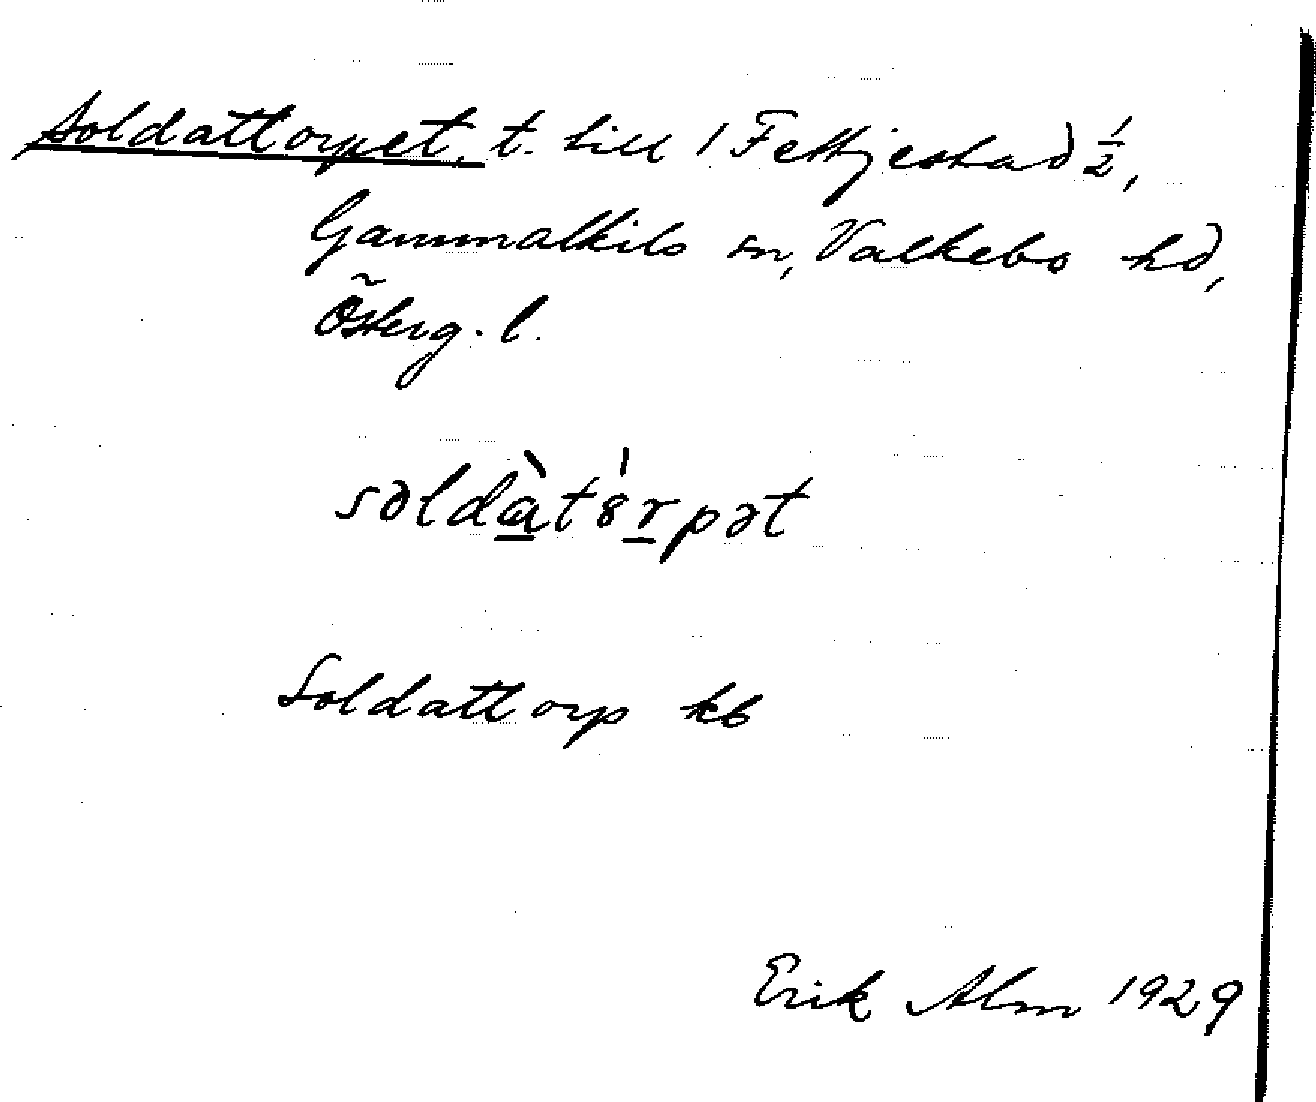 Soldattorpet, t. till 1 Fettjestad ½,
Gammalkils sn, Valkebo hd,
Österg. l.
səldàt8́rpət
Soldattorp kb
Erik Alm 1929